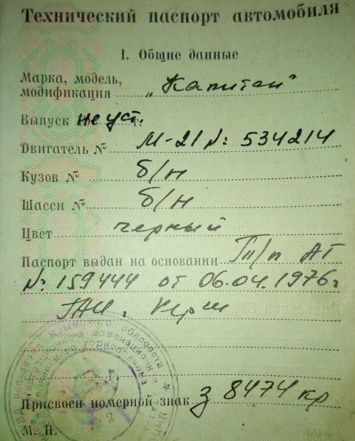 Технический паспорт автомобиля
I. Общие данные
Марка, модель,
модификация „Капитан"
Выпуск не уст.
Двигатель № М-21 № 534214
Кузов № б/н
Шасси № б/н
Цвет черный
Паспорт выдан на основании Т/п АТ
№ 159444 от 06.04.1976г
ГАИ г. Керчь
Присвоен номерной знак з 8474 кр
М. П.